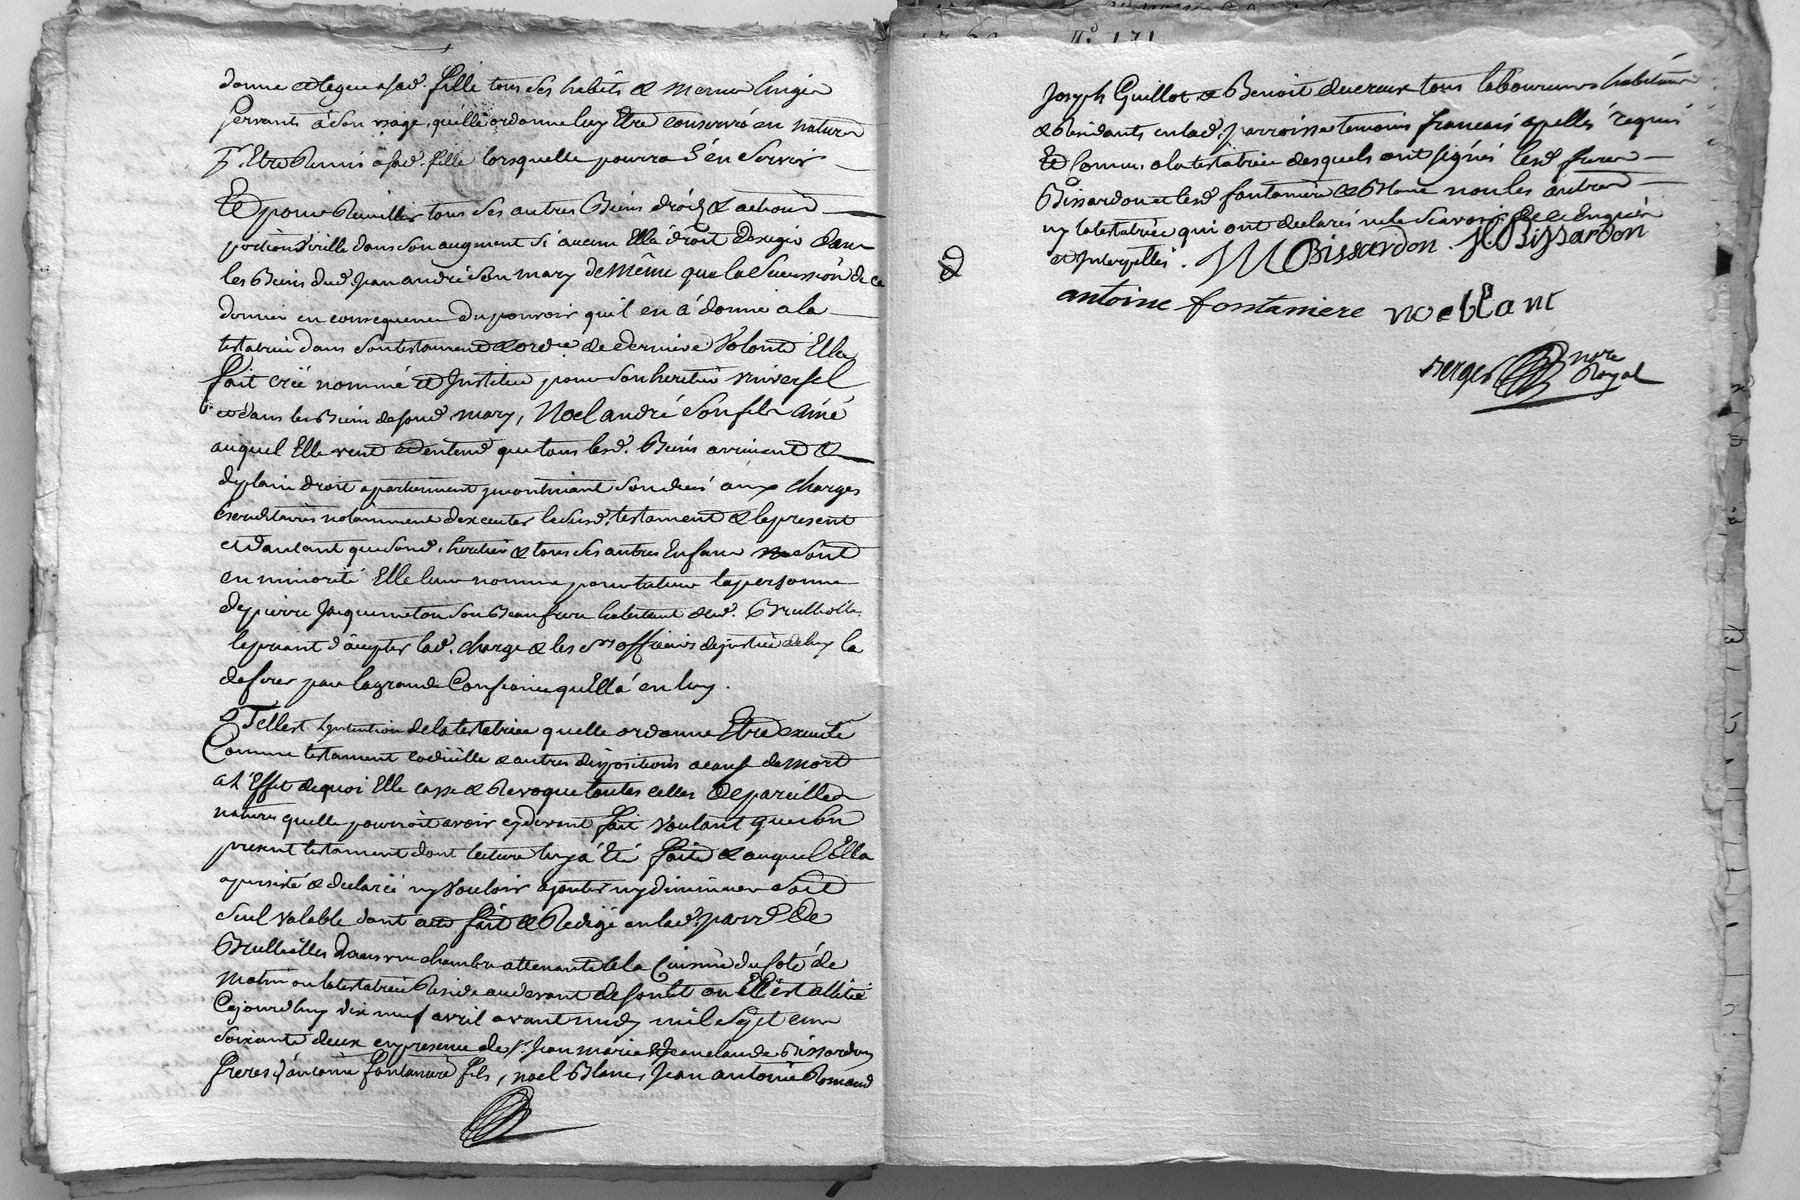 donne et legue a sad. fille tous ses habits & menu linge
servants à son usage, quelle ordonne luy Etre conservé en nature
pr. Etre Remis a sad. fille lorsquelle pourra s'en servir
Et pour Recueillir tous ses autres Biens droits & actions
portion virille dans son augment si aucun Ella droit dexiger dans
les Biens dud. Jean andré son mary de Même que la Sucession de ce
dernier en consequence du pouvoir quil en á donné a la
testatrice dans son testament & ordre de derniere Volonté Ella
fait créé nommé et Institué pour son heritier universel
et dans les Biens de son d. mary, Noel andré son fils ainé
auquel Elle veut et entend que tous lesd. Biens arrivent &
de plain droit apartiennent moyenant son deces aux charges
hereditaires notamment dexecuter le susd. testament & le present
et dautant que sond. heritier & tous ses autres Enfans sont
en minorité Elle leur nomme pour tuteur la personne
de pierre Jacquemeton son Beaufrere habitant dud. Brullioles
le priant d'accepter lad. charge & les srs officiers de justice de luy la
deferer par la grande Confiance quElla en luy.
Tellest Lintention de la testatrice quelle ordonne Etre executé
Comme testament codicille & autres dispositions a cause de mort
a L'Effet de quoi Elle casse & Revoque toutes celles de pareilles
natures quelle pourroit avoir cy devant fait voulant que son
present testament dont lecture luy á Eté faite & auquel Ella
a persisté & declaré ny vouloir ajouter ny diminuer soit
seul valable dont acte fait & Redigé en lad. parr. de
Brullioles dans une chambre attenante de la Cuisine du Coté de
Matin ou la testatrice Reside au devant de son lit ou Elle est allitée
Cejourdhuy dix neuf avril avant midy mil Sept cent
soixante deux en presence de sr. Jean marie & Jean claude Bissardon
freres d'antoine fontaniere fils, noel Blanc, Jean antoine Romand
Joseph Guillot & Benoit ducreux tous laboureurs habitans
& Residants en lad. parroisse temoins francais apellés requis
Et Connus a la testatrice desquels ont signés lesd. freres
Bissardon et lesd. fontaniere & Blanc non les autres
ny la testatrice qui ont declarés ne le Scavoir de ce Enquis
et Interpellés. JM Bissardon JC Bissardon
antoine fontaniere noel blanc
verges nore
Royal